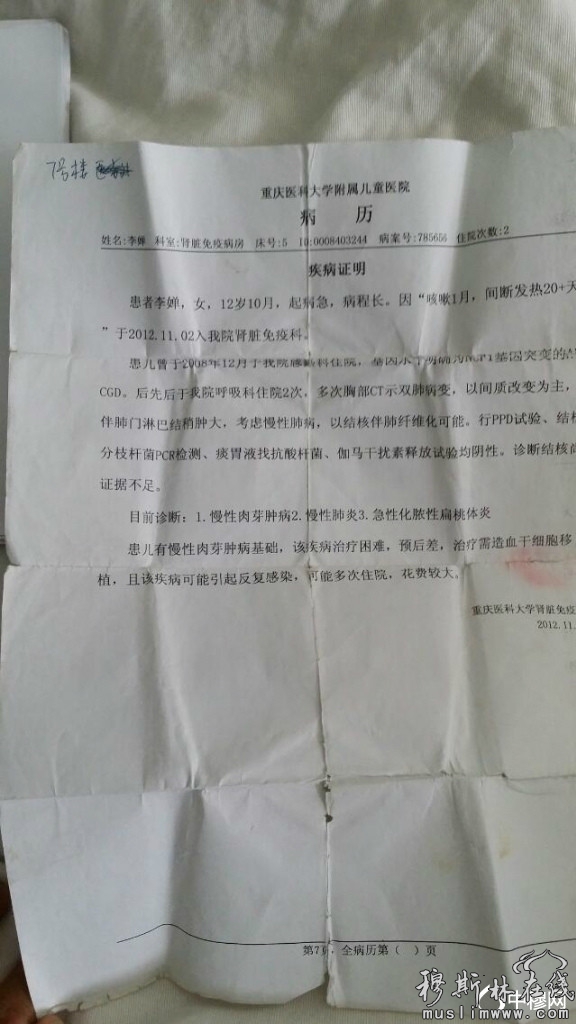 7号楼
重庆医科大学附属儿童医院
病 历
姓名:李婵 科室:肾脏免疫病房 床号:5 ID:0008403244 病案号:785656 住院次数:2
疾病证明
患者李婵，女，12岁10月，起病急，病程长。因“咳嗽1月，间断发热20+天
”于2012.11.02入我院肾脏免疫科。
患儿曾于2008年12月于我院感染科住院，基因水平明确为NCF1基因突变的
CGD。后先后于我院呼吸科住院2次，多次胸部CT示双肺病变，以间质改变为主，
伴肺门淋巴结稍肿大，考虑慢性肺病，以结核伴肺纤维化可能。行PPD试验、结核
分枝杆菌PCR检测、痰胃液找抗酸杆菌、伽马干扰素释放试验均阴性。诊断结核尚
证据不足。
目前诊断：1.慢性肉芽肿病2.慢性肺炎3.急性化脓性扁桃体炎
患儿有慢性肉芽肿病基础，该疾病治疗困难，预后差，治疗需造血干细胞移
植，且该疾病可能引起反复感染，可能多次住院，花费较大。
重庆医科大学肾脏免疫
2012.11.
第7页，全病历第（ ）页
穆斯林在线
muslimwww.com
中穆网